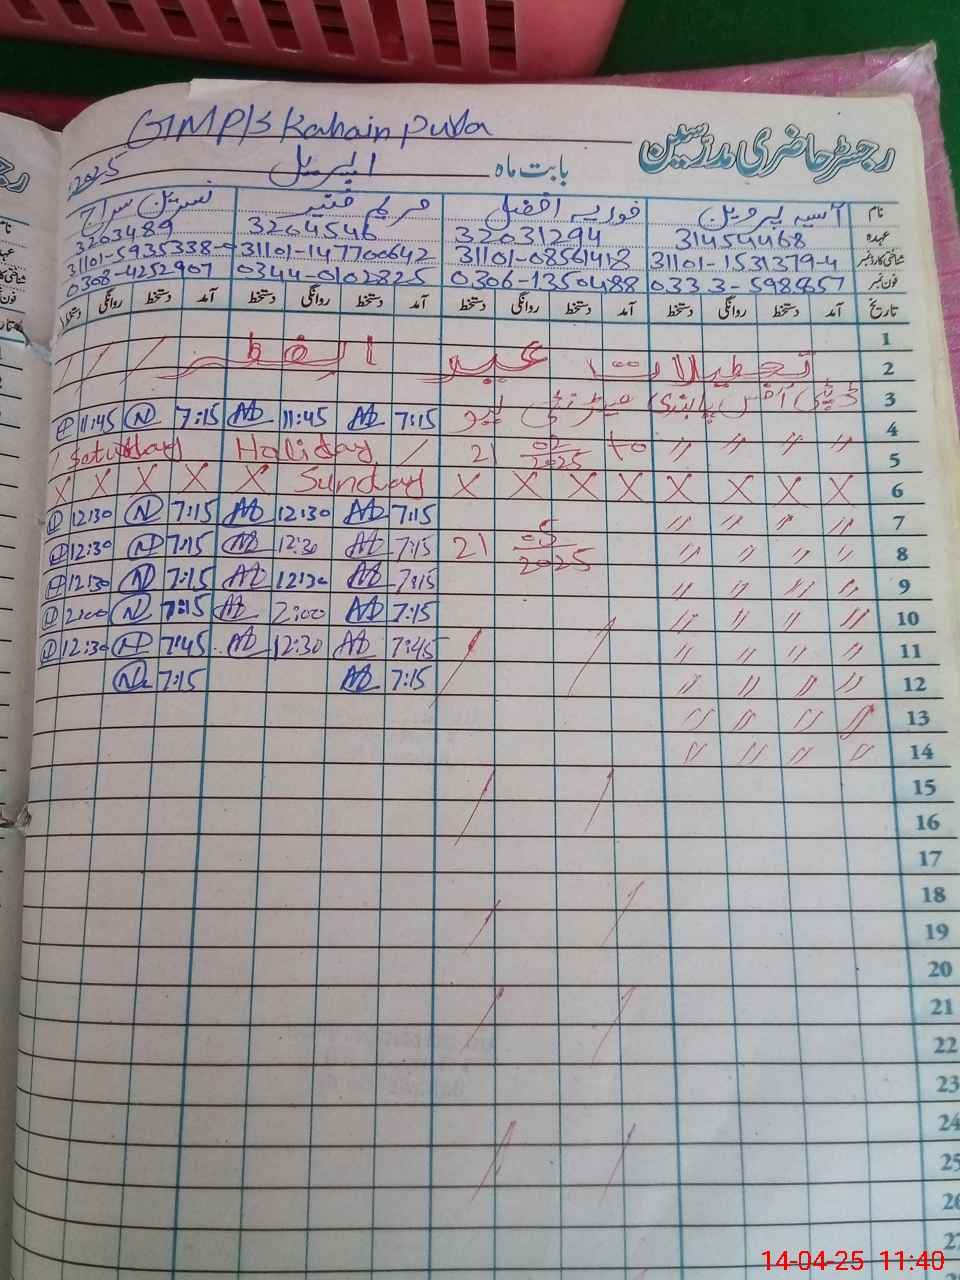 GMP/S Kahain Pura
رجسٹر حاضری مدرسین
بابت ماہ اپریل 2025
نام آسیہ پروین فوزیہ افضل مریم منیر نسرین سراج
عہدہ 31454468 32031294 3204546 3203489
شناختی کارڈ نمبر 31101-1531379-4 31101-0856141-8 31101-147700642 31101-5935338-
فون نمبر 0306-1350488 0344-0102825 0308-4252907
تاریخ آمد دستخط روانگی دستخط آمد دستخط روانگی دستخط آمد دستخط روانگی دستخط آمد دستخط روانگی دستخط
1
2 تعطیلات عید الفطر
3
4 7:15 11:45 7:15 11:45
5 〃 〃 〃 〃 to 03/2025 21 Holiday Saturday
6 X X X X X X X X Sunday X X X X X
7 〃 〃 〃 〃 7:15 12:30 7:15 12:30
8 〃 〃 〃 〃 05/2025 21 7:15 12:30 7:15 12:30
9 〃 〃 〃 〃 7:15 12:30 7:15 12:30
10 〃 〃 〃 〃 7:15 2:00 7:15 2:00
11 〃 〃 〃 〃 7:45 12:30 7:45 12:30
12 〃 〃 〃 〃 7:15 7:15
13 〃 〃 〃 〃
14 〃 〃 〃 〃
15
16
17
18
19
20
21
22
23
24
25
26
27
14-04-25 11:40